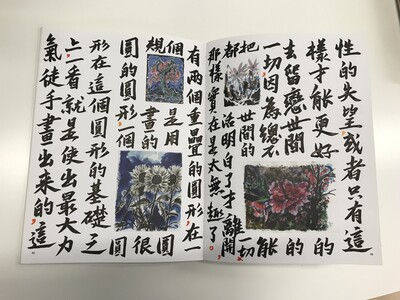 性的失望或者只有這
樣才能更好的
去留戀世間的
一切因為總不能
把世間的一切
都活明白了才離開
那樣實在是太無趣了
有兩個重疊的圓形在一
個是用圓
規畫的很
圓的圓形個圓
形在這個圓形的基礎之
上一看就是使出最大力
氣徒手畫出來的這